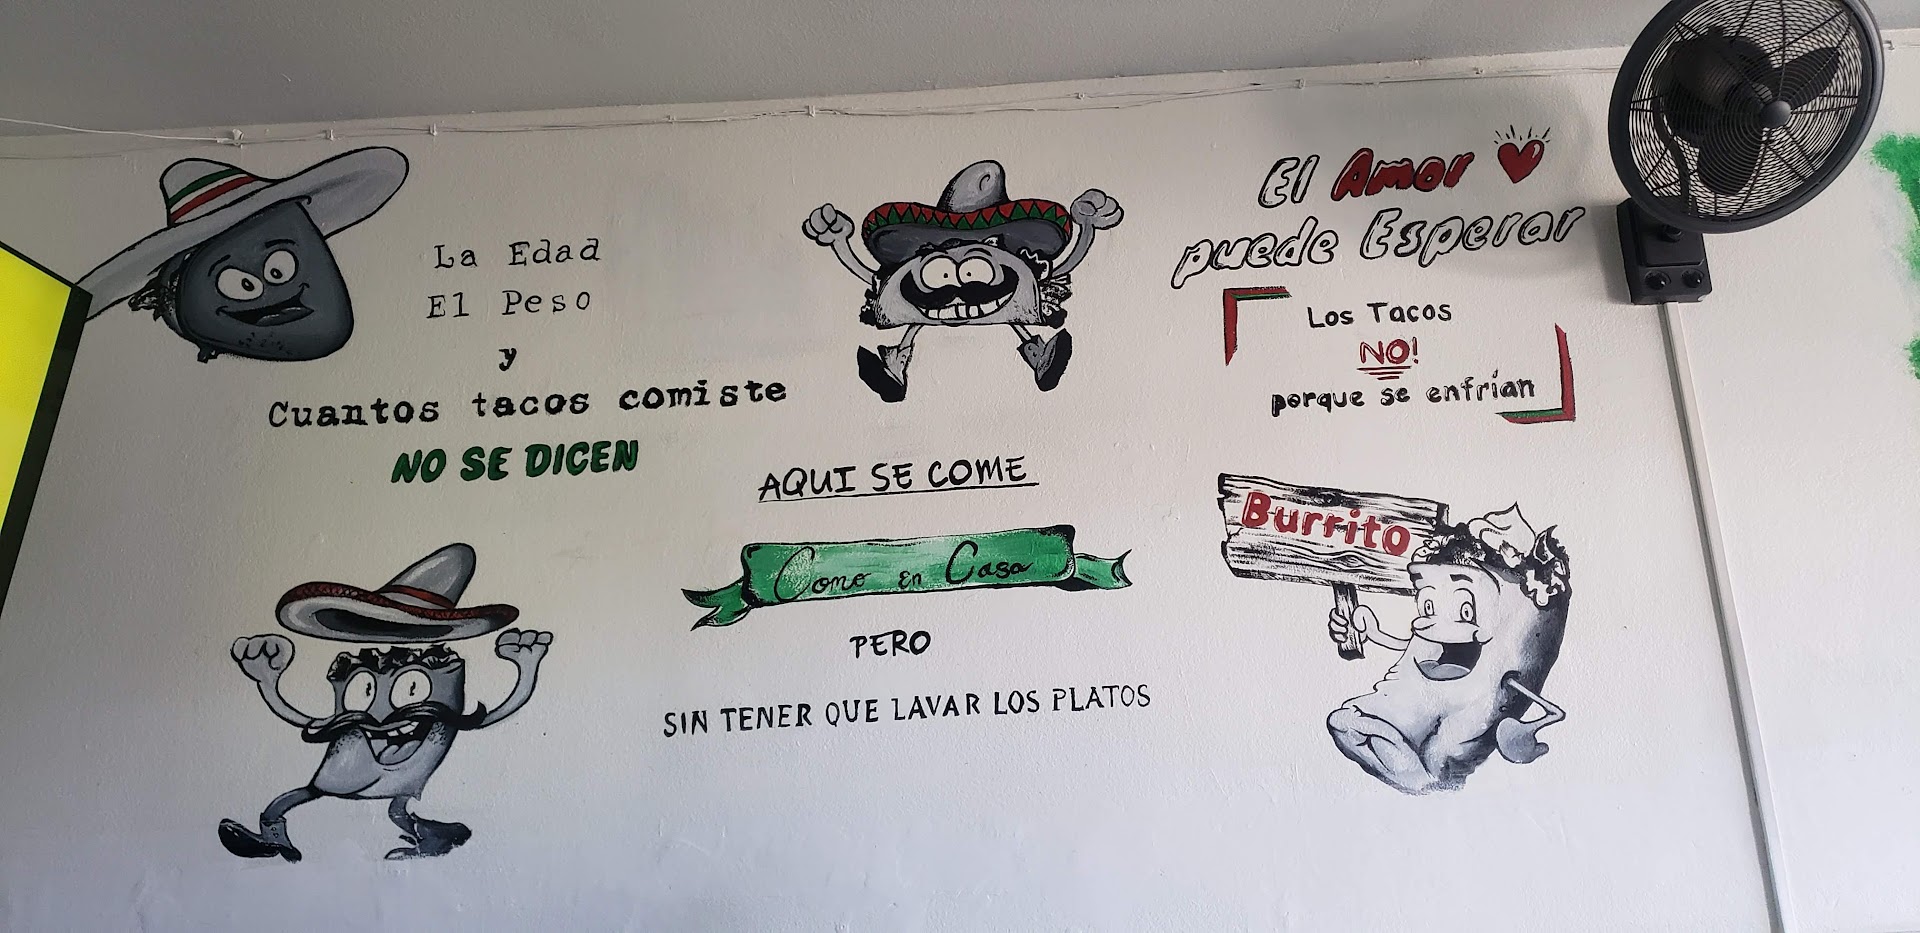 La Edad
El Peso
y
Cuantos tacos comiste
NO SE DICEN
El Amor
puede Esperar
Los Tacos
NO!
porque se enfrían
AQUI SE COME
Como en Casa
PERO
SIN TENER QUE LAVAR LOS PLATOS
Burrito